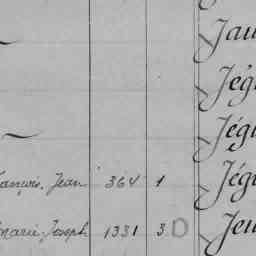 Jau
Jég
Jég
rançois, Jean 364 1 Jég
marie, Joseph 1331 3 Jeu